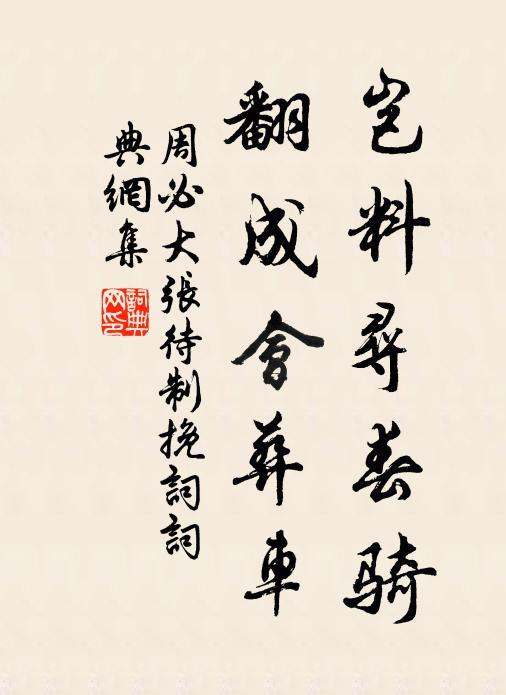 豈料尋春騎
翻成會葬車
周必大張待制挽詞詞
典網集
詞典網印